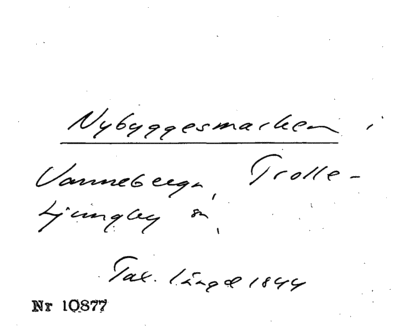 Nybyggesmarken i
Vanneberga, Trolle-
Ljungby sn,
Tax. längd 1844
Nr 10877